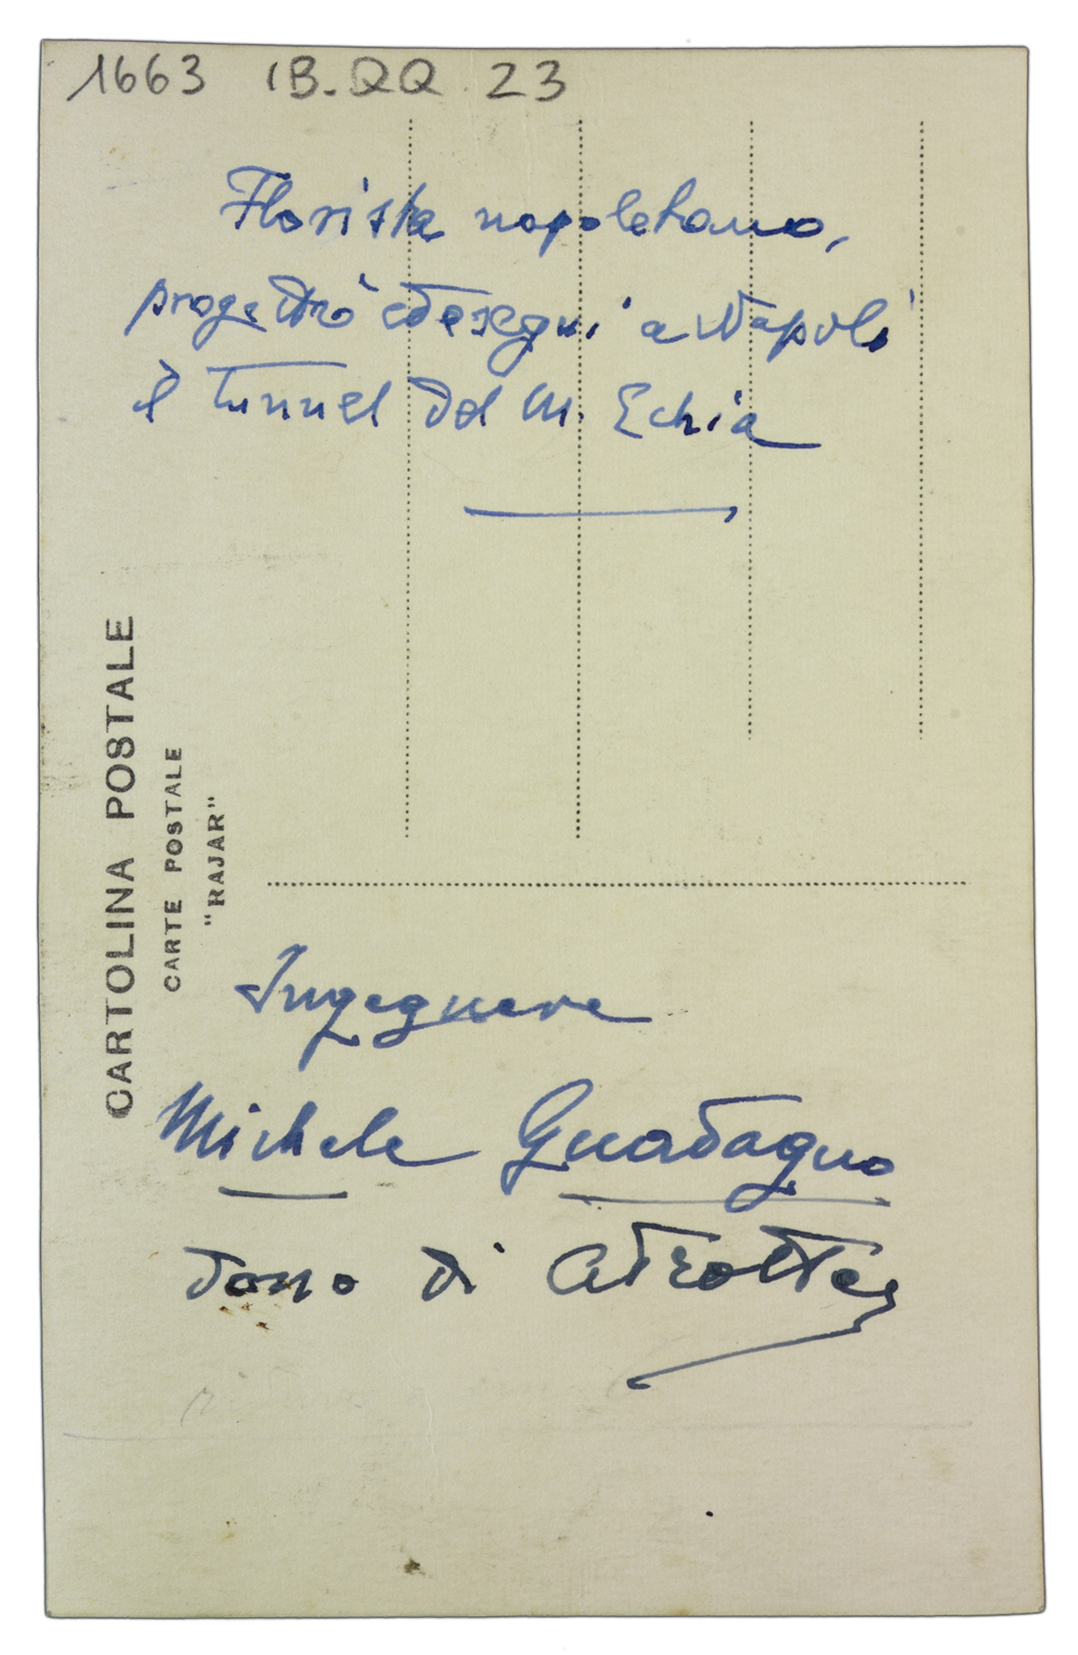 1663 IB.QQ.23
Florista napoletano,
progettò ed eseguì a Napoli
il Tunnel del M. Echia
CARTOLINA POSTALE
CARTE POSTALE
"RAJAR"
Ingegnere
Michele Guadagno
dono di A Trotter